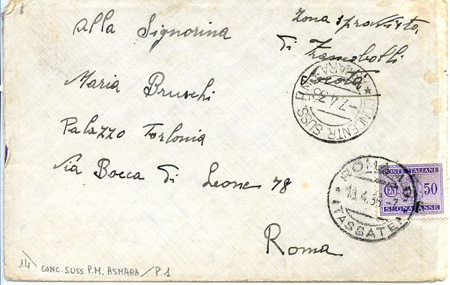 Alla Signorina
Zona sprovvista
di francobolli
Maria Bruschi
Palazzo Torlonia
Via Bocca di Leone 78
Roma
CONCENTR. SUSS. P.
ASMARA
-7.4.36
ROMA
13.4.36-7
(TASSATE)
POSTE ITALIANE
CENT. 50
SEGNATASSE
14) CONC. SUSS. P.M. ASMARA/P1